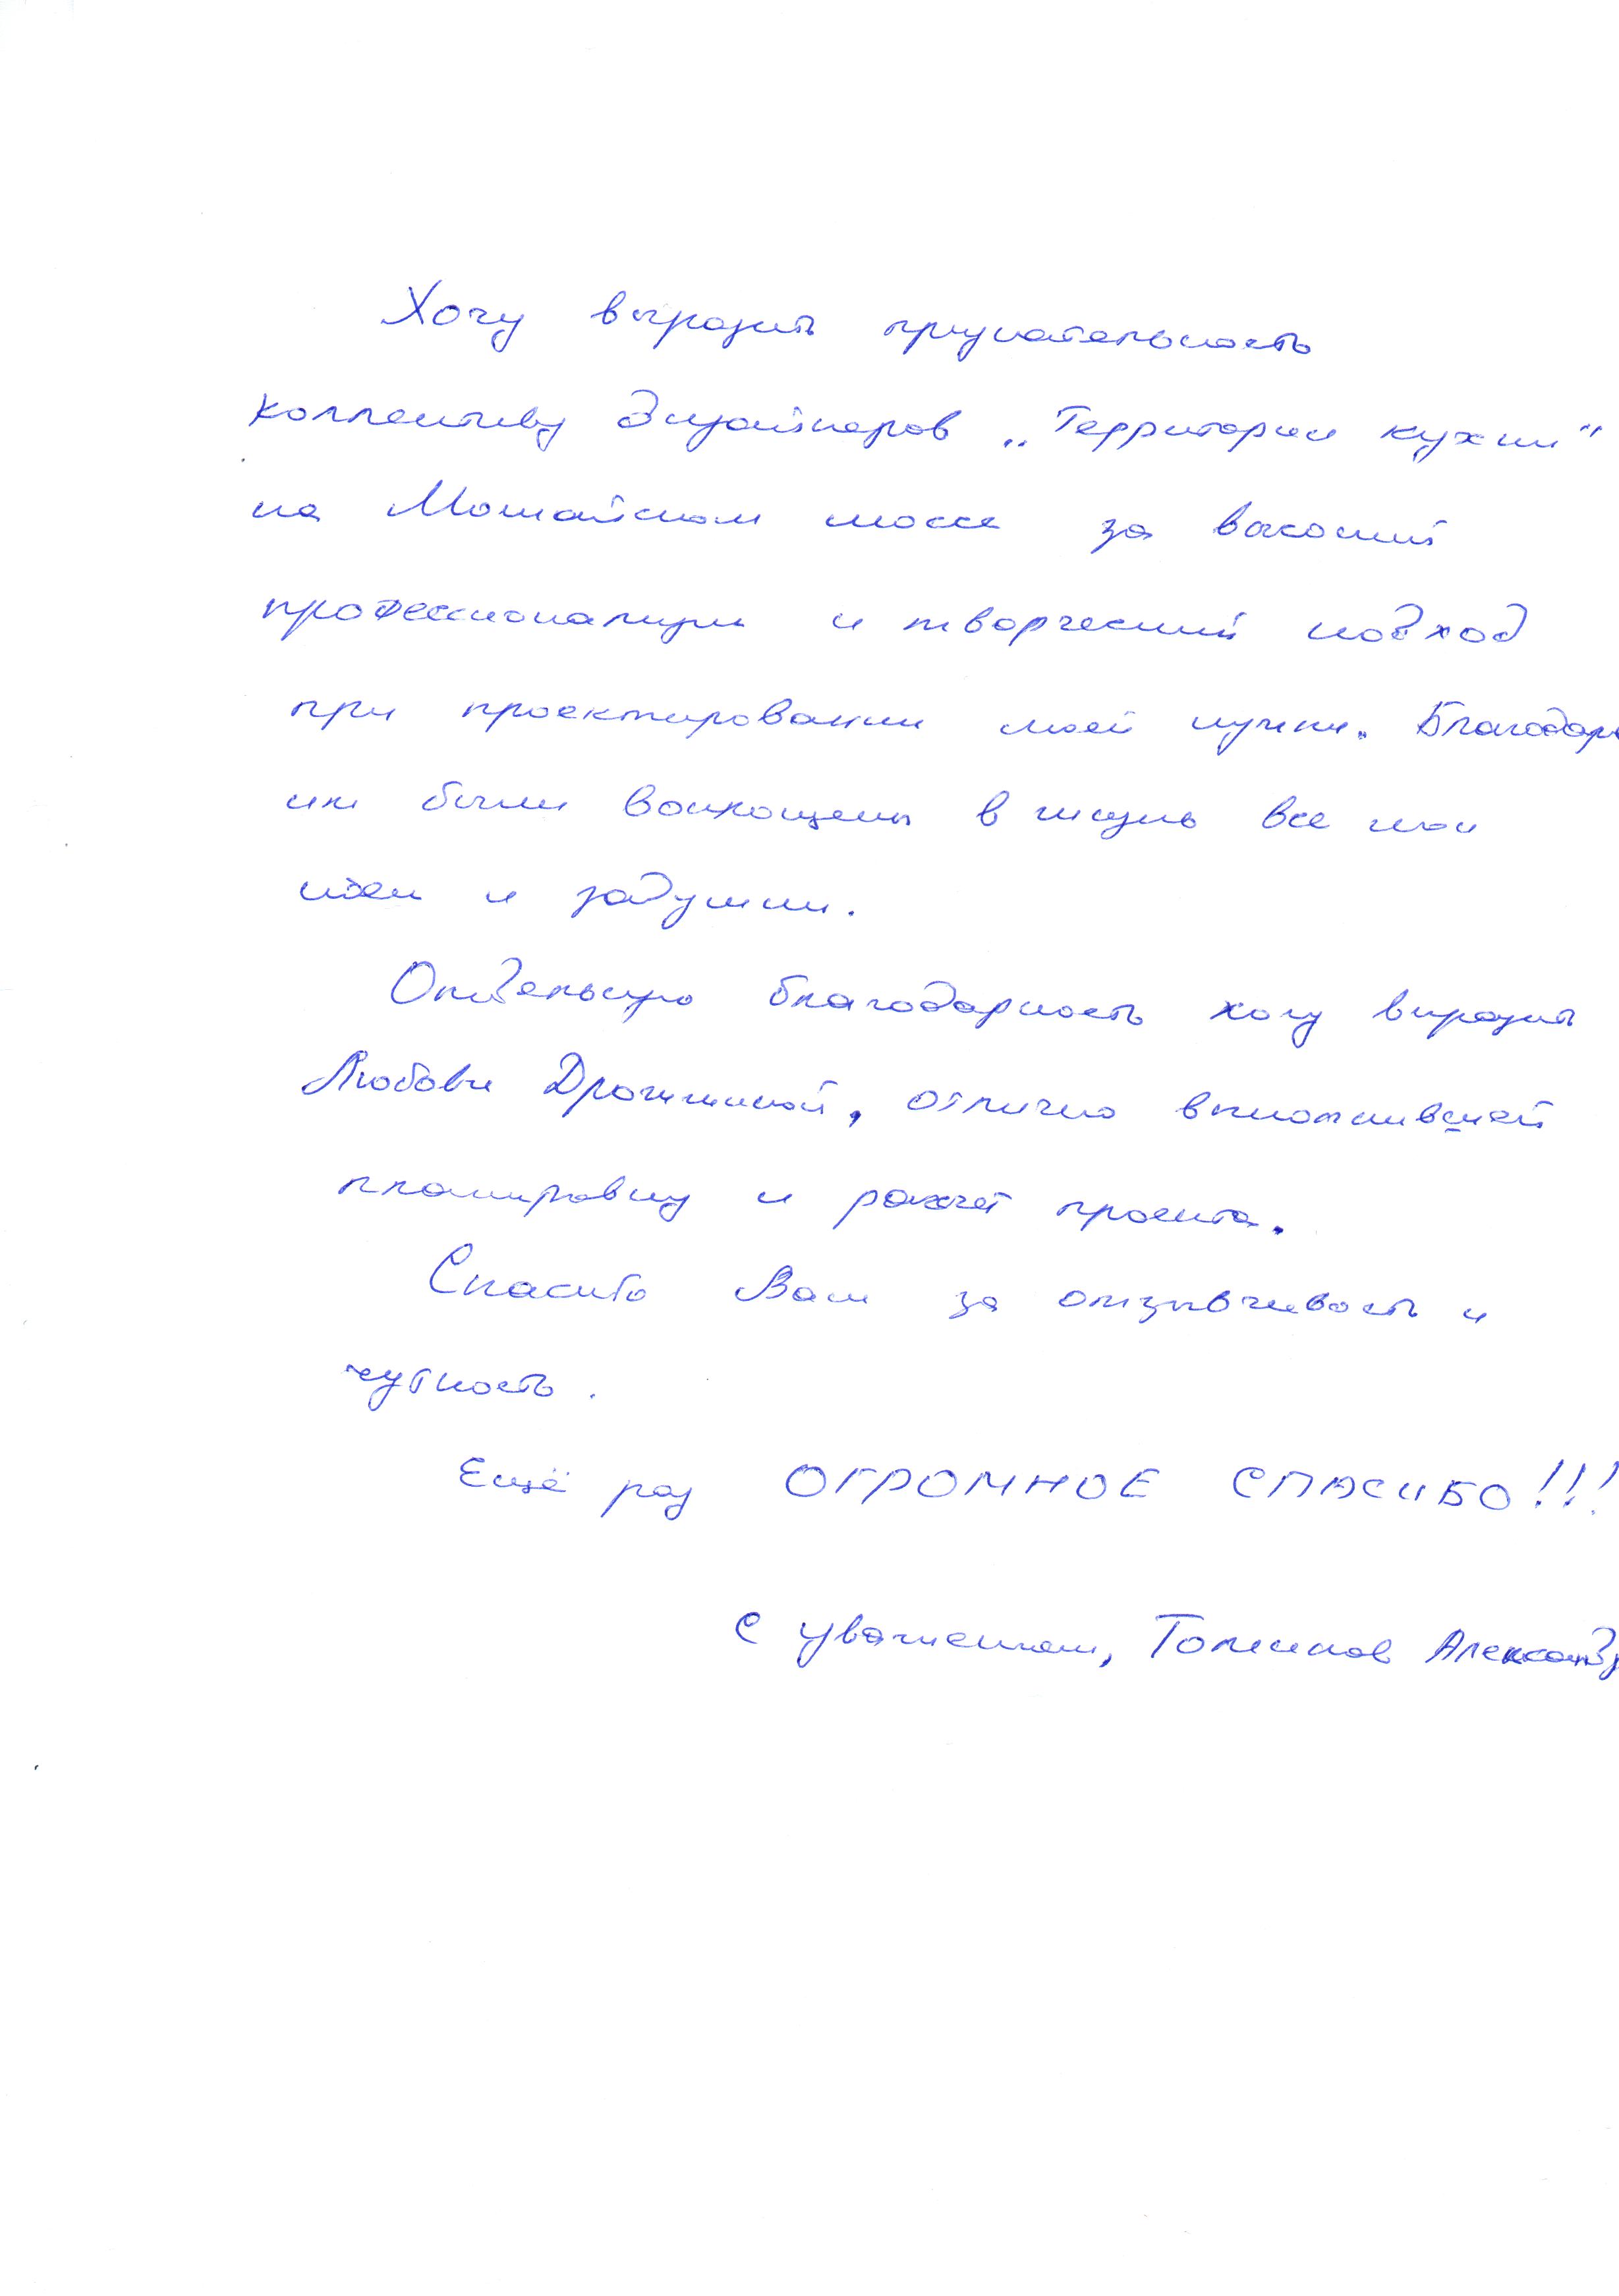 Хочу выразить признательность
коллективу дизайнеров „Территории кухни“
на Можайском шоссе за высокий
профессионализм и творческий подход
при проектировании моей кухни. Благодаря
им были воплощены в жизнь все мои
идеи и задумки.
Отдельную благодарность хочу выразить
Любови Дрожжиной, отлично выполнившей
планировку и расчет проекта.
Спасибо Вам за отзывчивость и
чуткость.
Ещё раз ОГРОМНОЕ СПАСИБО!!!
С уважением, Александр